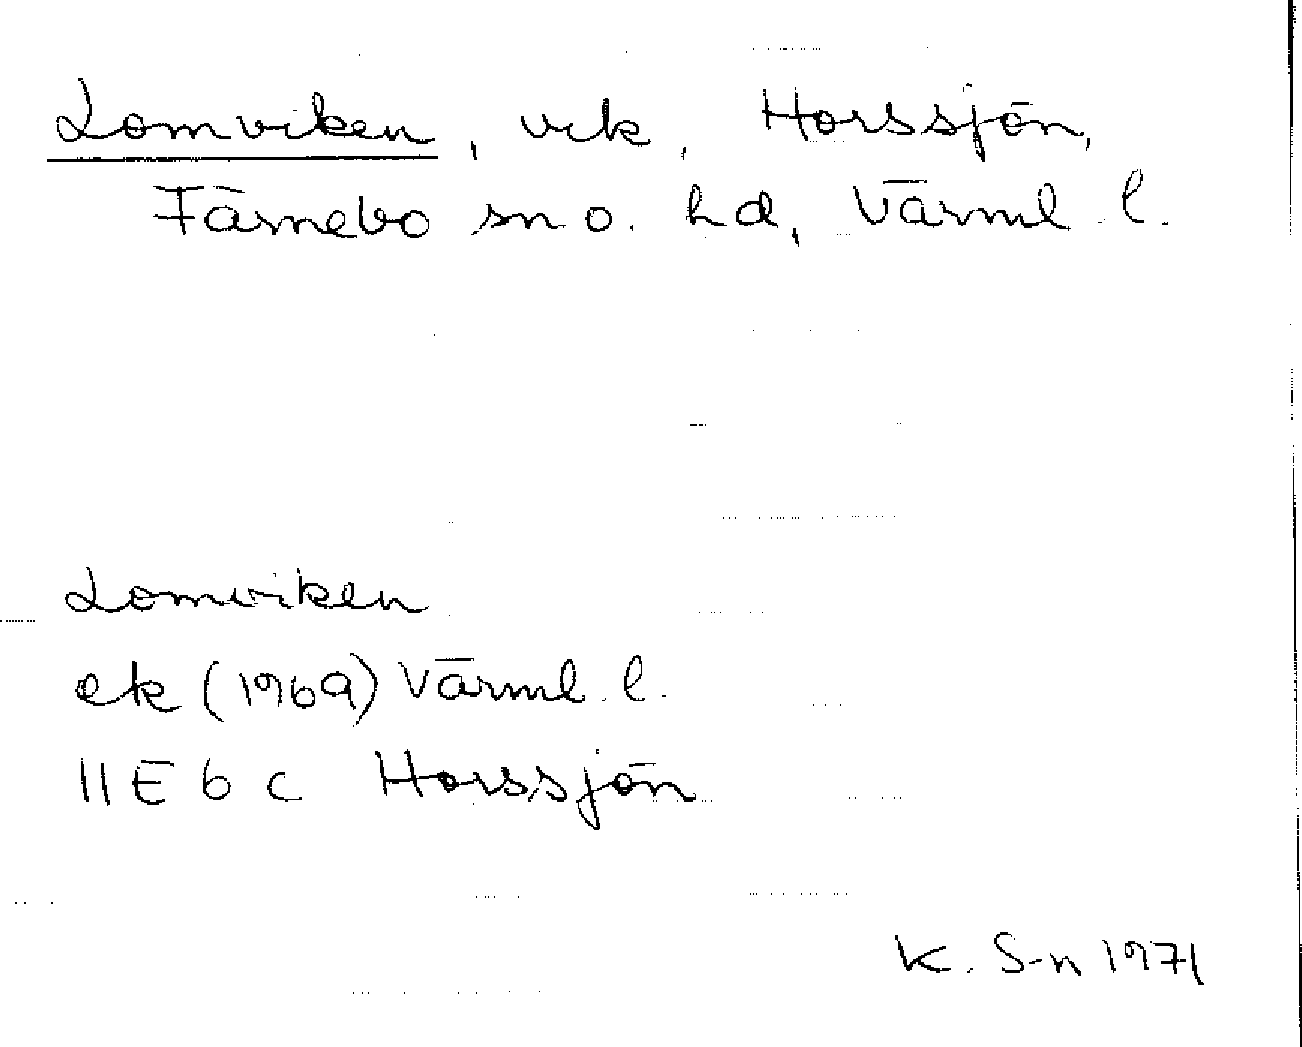 Lomviken, vik, Horssjön,
Färnebo sn o. hd, Värml. l.
Lomviken
ek (1969) Värml. l.
11E 6 c Horssjön
K. S-n 1971